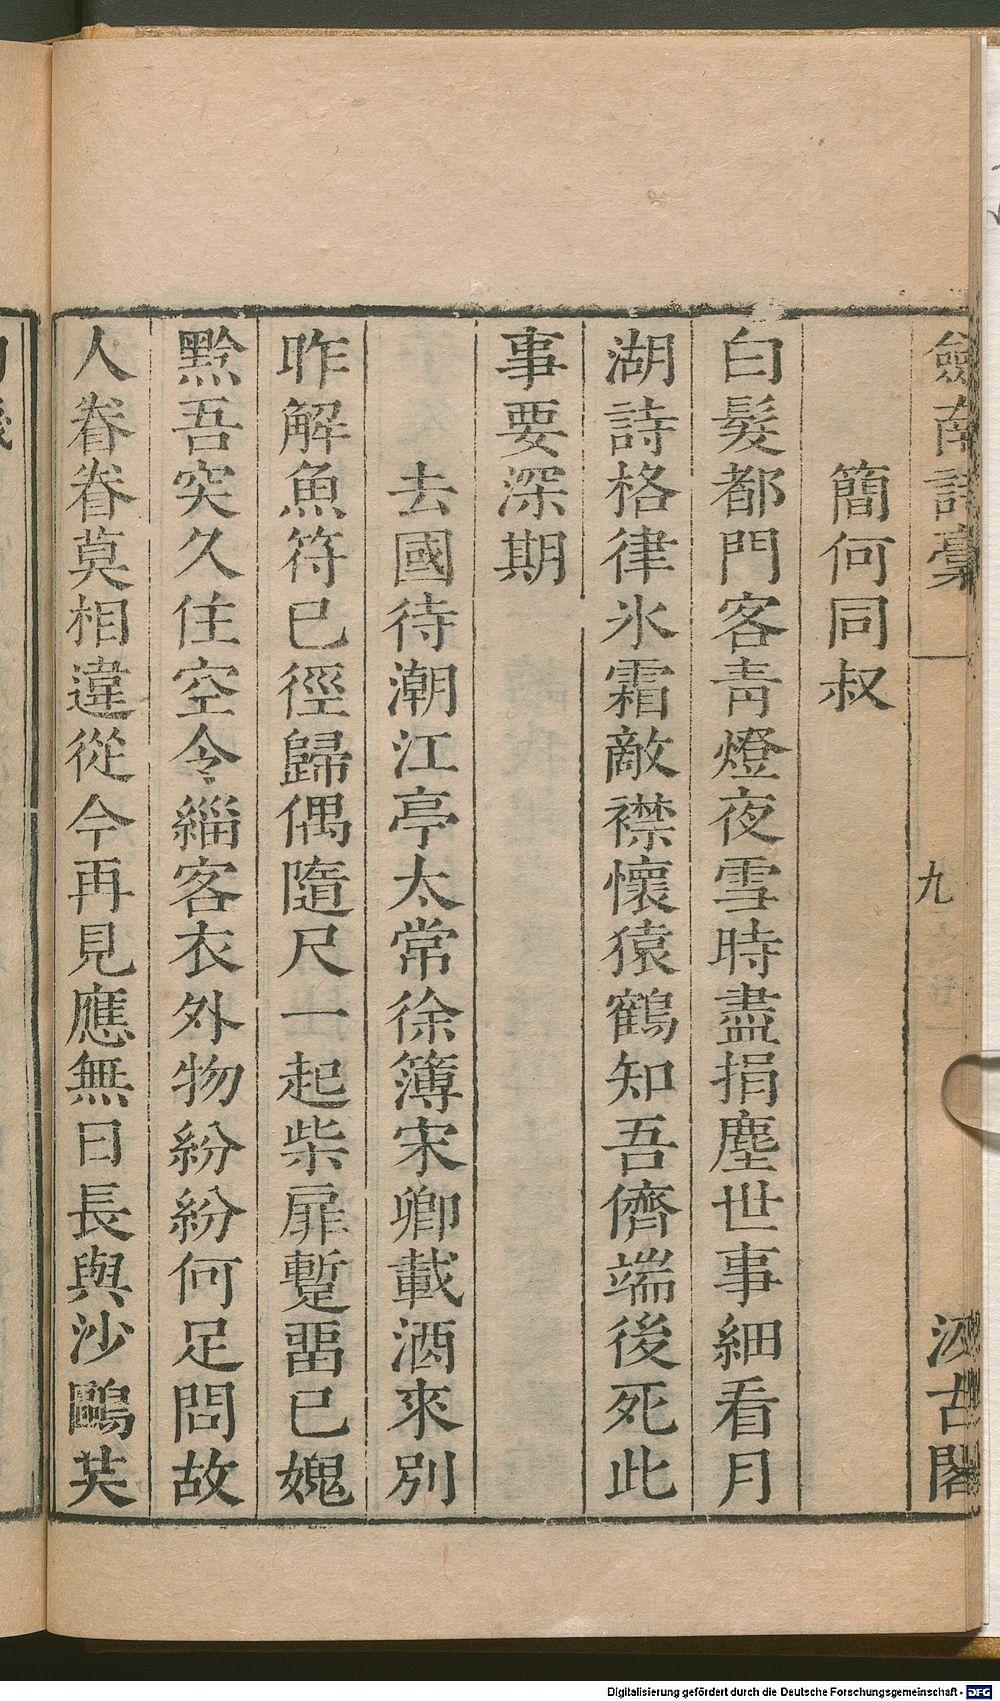 劒南詩稾
九
汲古閣
簡何同叔
白髮都門客青燈夜雪時盡捐塵世事細看月
湖詩格律氷霜敵襟懷猿鶴知吾儕端後死此
事要深期
去國待潮江亭太常徐簿宋卿載酒來別
昨解魚符已徑歸偶隨尺一起柴扉蹔畱已媿
黔吾突久住空令緇客衣外物紛紛何足問故
人眷眷莫相違從今再見應無日長與沙鷗共
Digitalisierung gefördert durch die Deutsche Forschungsgemeinschaft - DFG